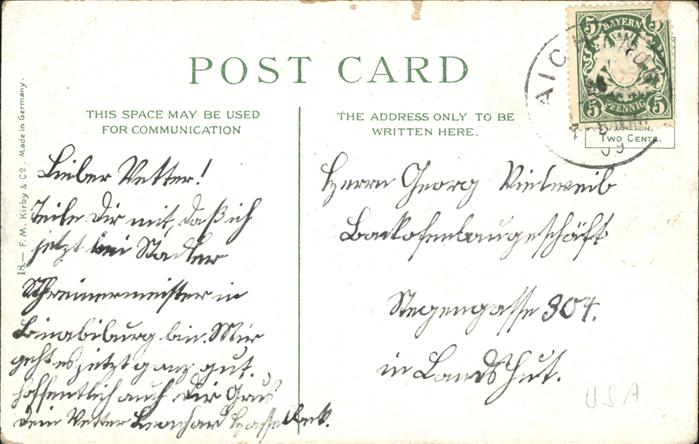 POST CARD
THIS SPACE MAY BE USED
FOR COMMUNICATION
THE ADDRESS ONLY TO BE
WRITTEN HERE.
18.— F. M. Kirby & Co. Made in Germany.
BAYERN
5 5
5 PFENNIG 5
AICH
09
Two Cents.
Lieber Vetter!
Teile Dir mit, daß ich
jetzt bei Stadler
Schreinermeister in
Binabiburg bin. Mir
geht es jetzt ganz gut.
hoffentlich auch Dir Grus
Dein Vetter
Herrn Georg Vielweib
Backofenbaugeschäft
Stegengasse 304.
in Landshut.
USA